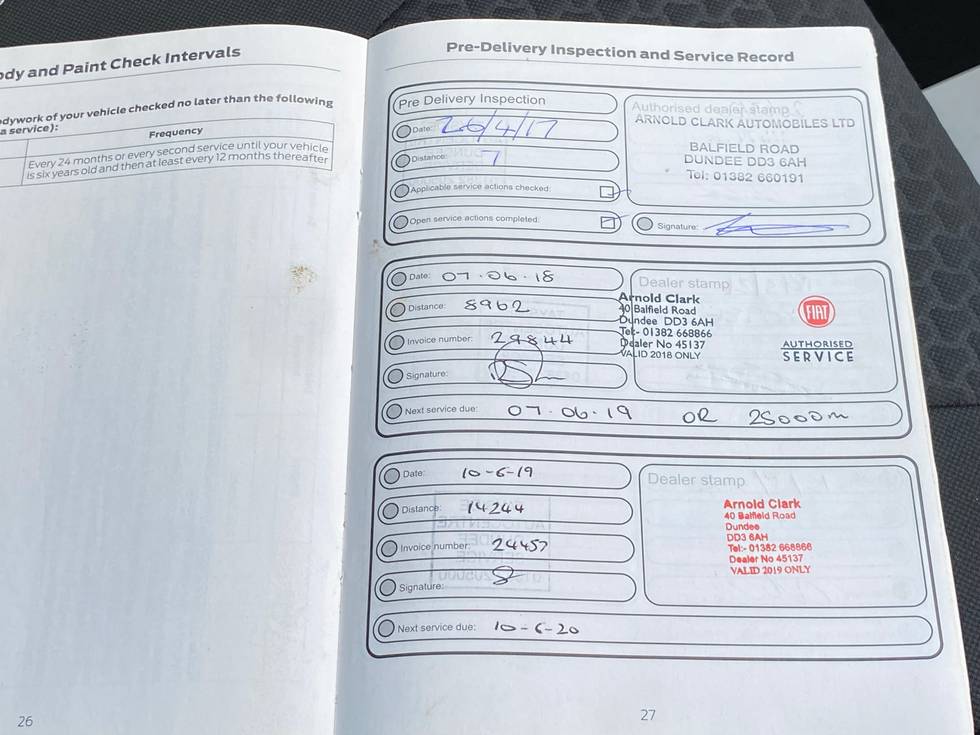 ody and Paint Check Intervals
dywork of your vehicle checked no later than the following
a service):
Frequency
Every 24 months or every second service until your vehicle
is six years old and then at least every 12 months thereafter
26
Pre-Delivery Inspection and Service Record
Pre Delivery Inspection
Date: 26/4/17
Distance: 7
Applicable service actions checked:
Open service actions completed:
Authorised dealer stamp
ARNOLD CLARK AUTOMOBILES LTD
BALFIELD ROAD
DUNDEE DD3 6AH
Tel: 01382 660191
Signature:
Date: 07.06.18
Distance: 8962
Invoice number: 29844
Signature:
Dealer stamp
Arnold Clark
40 Balfield Road
Dundee DD3 6AH
Tel:- 01382 668866
Dealer No 45137
VALID 2018 ONLY
FIAT
AUTHORISED
SERVICE
Next service due: 07.06.19 OR 25000m
Date: 10-6-19
Distance: 14244
Invoice number: 24457
Signature:
Dealer stamp
Arnold Clark
40 Balfield Road
Dundee
DD3 6AH
Tel:- 01382 668866
Dealer No 45137
VALID 2019 ONLY
Next service due: 10-6-20
27